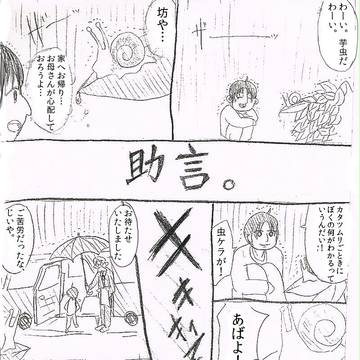 わーい。
わーい。
芋虫だ
ザーー
坊や…
家へお帰り…
お母さんが心配して
おろうよ…
助言。
カタツムリごときに
ぼくの何がわかるって
いうんだい!!
虫ケラが!
あばよ!
キキィ
お待たせ
いたしました
ご苦労だったな、
じいや。